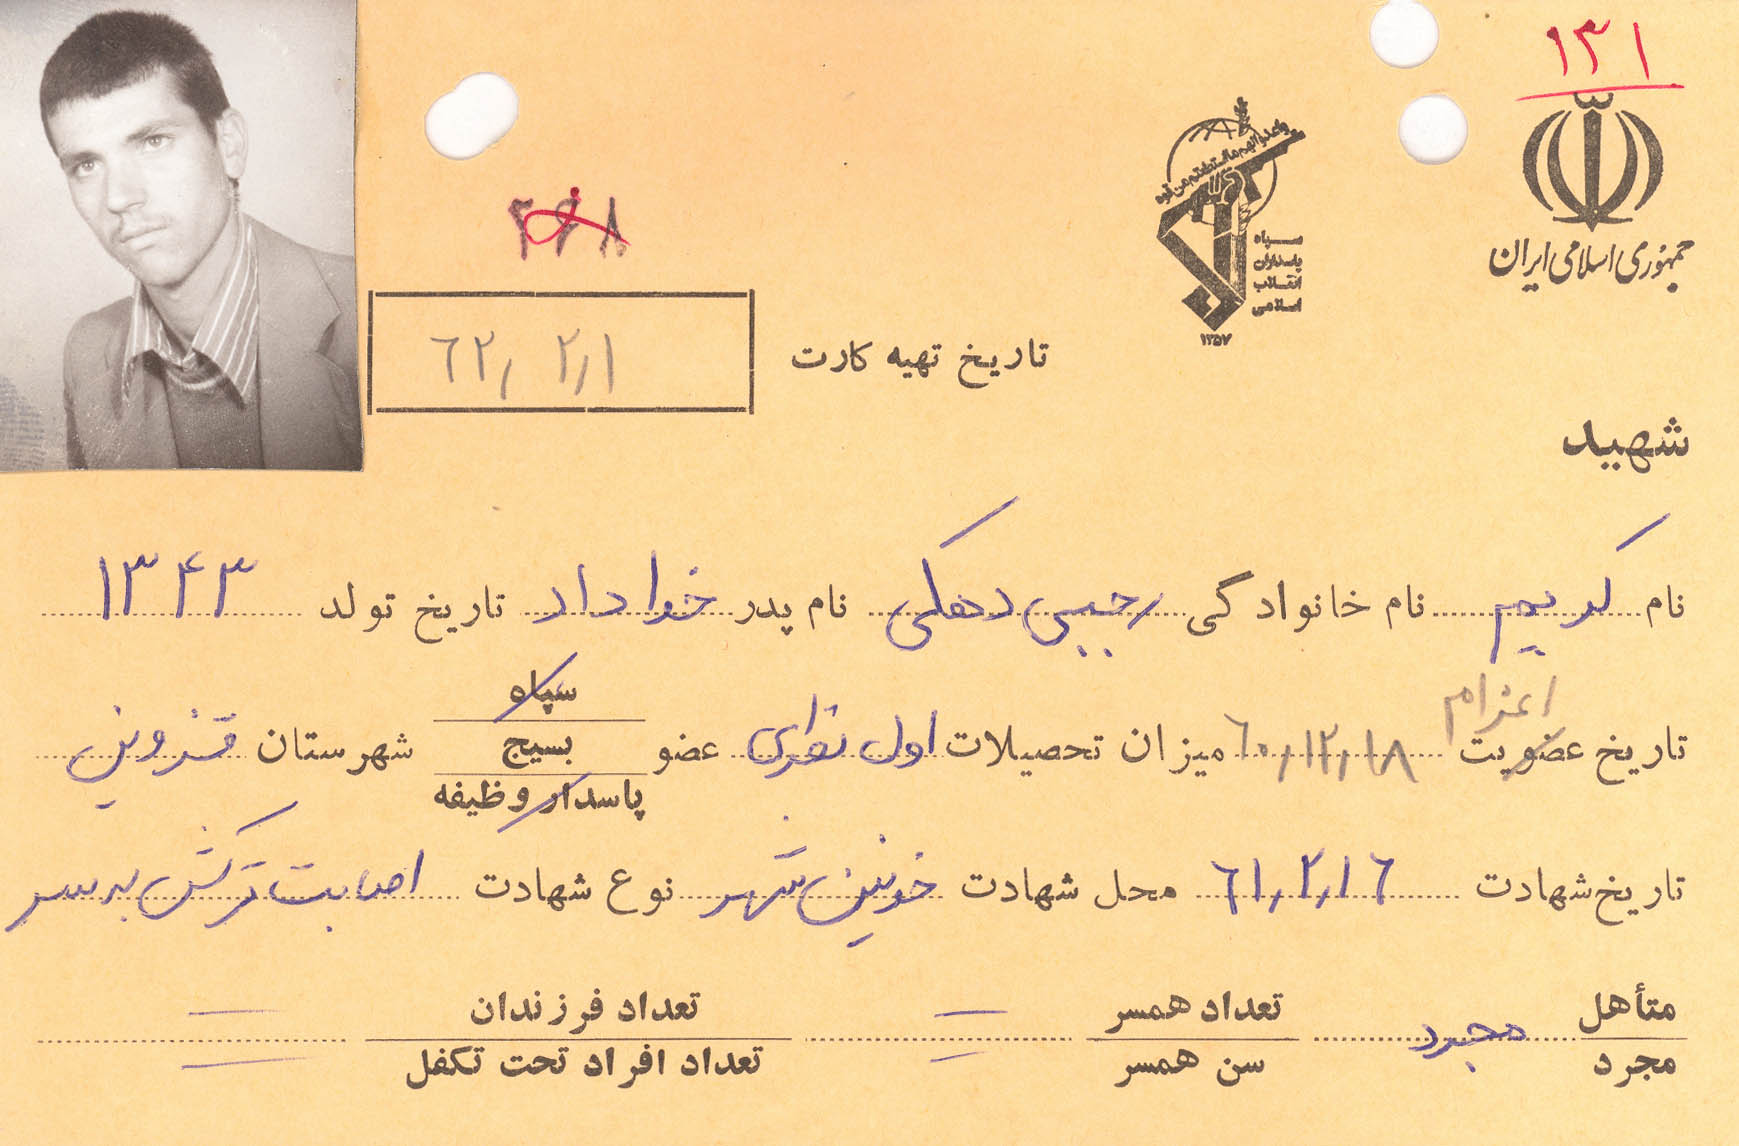 ۱۳۱
جمهوری اسلامی ایران
واعدوا لهم ما استطعتم من قوة
سپاه
پاسداران
انقلاب
اسلامی
۱۳۵۷
۴۶۸
تاریخ تهیه کارت ۶۲/۲/۱
شهید
نام کریم نام خانوادگی رجبی دهکی نام پدر خداداد تاریخ تولد ۱۳۴۳
اعزام
تاریخ عضویت ۶۰/۱۲/۱۸ میزان تحصیلات اول نظری عضو سپاه بسیج پاسدار وظیفه شهرستان قزوین
تاریخ شهادت ۶۱/۲/۱۶ محل شهادت خونین شهر نوع شهادت اصابت ترکش به سر
متأهل مجرد مجرد تعداد همسر — سن همسر — تعداد فرزندان — تعداد افراد تحت تکفل —